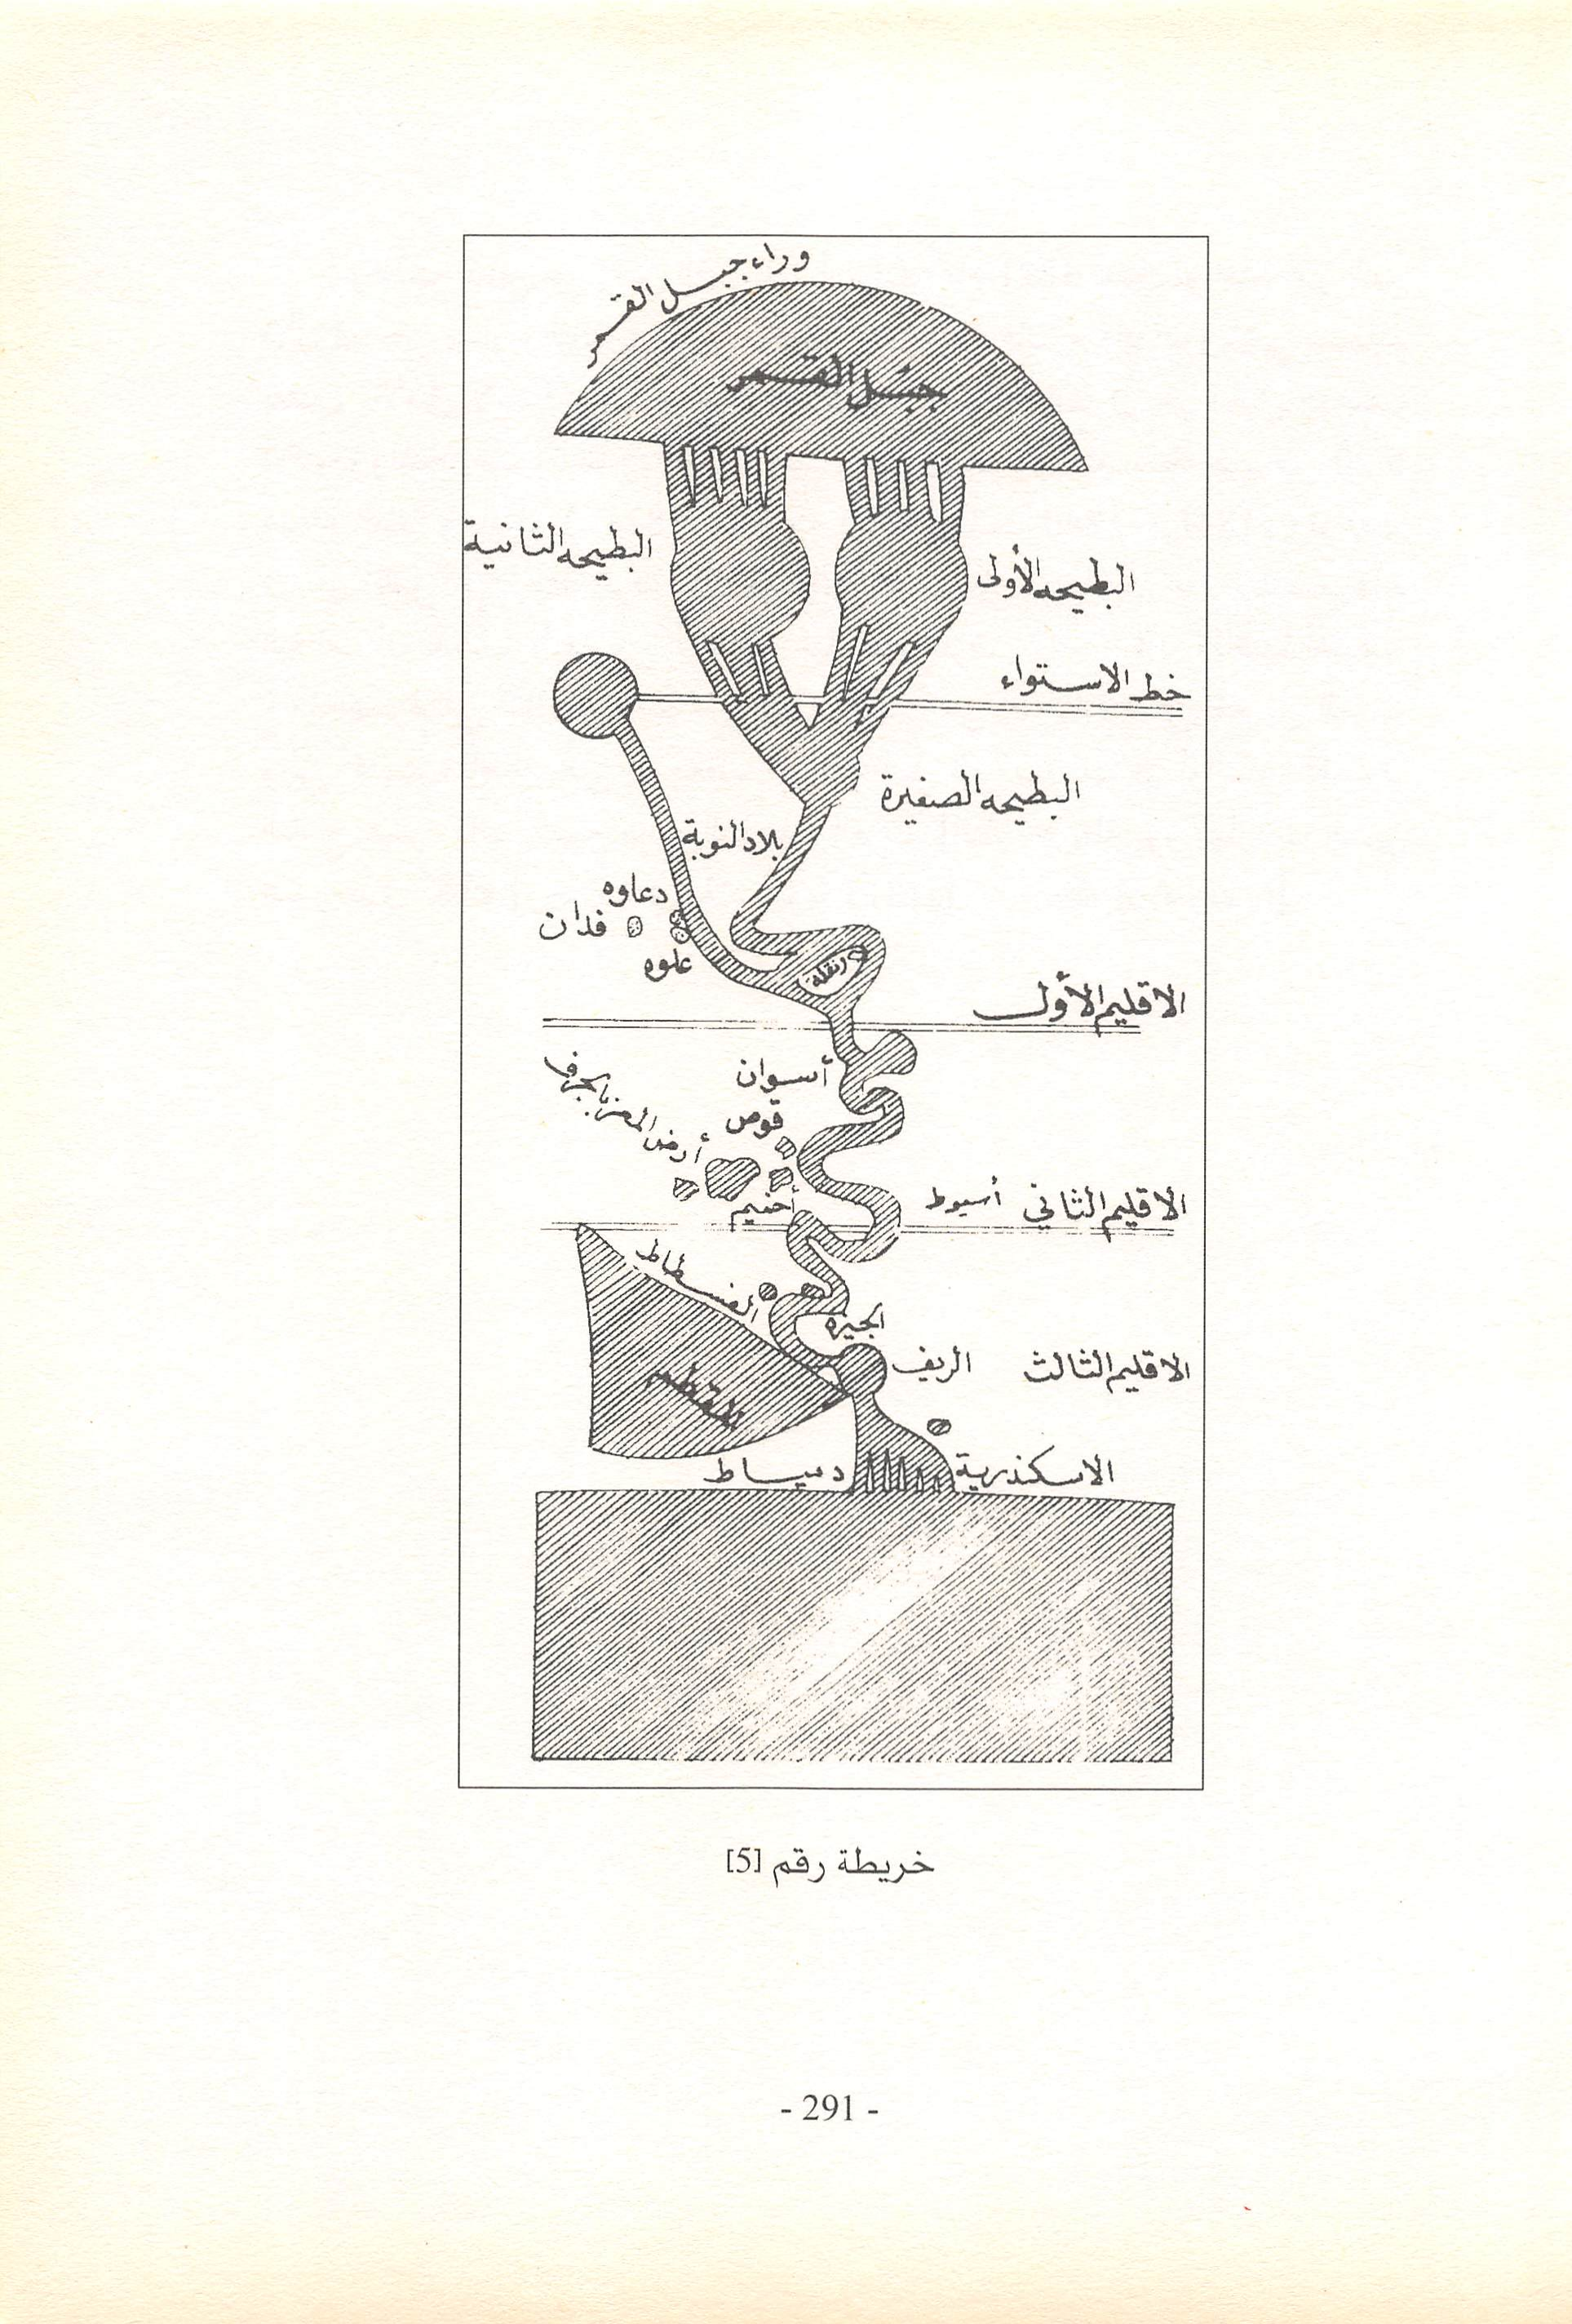 وراء جبل القمر
جبل القمر
البطيحه الثانية
البطيحه الأولى
خط الاستواء
البطيحه الصغيرة
بلاد النوبة
دعاوه
فدان
علوه
دنقلة
الاقليم الأول
أسوان
قوص
أرض المعز
أسيوط
الاقليم الثاني
أخميم
الفسطاط
الجيزه
الريف
الاقليم الثالث
المقطم
الاسكندرية
دمياط
خريطة رقم [5]
- 291 -